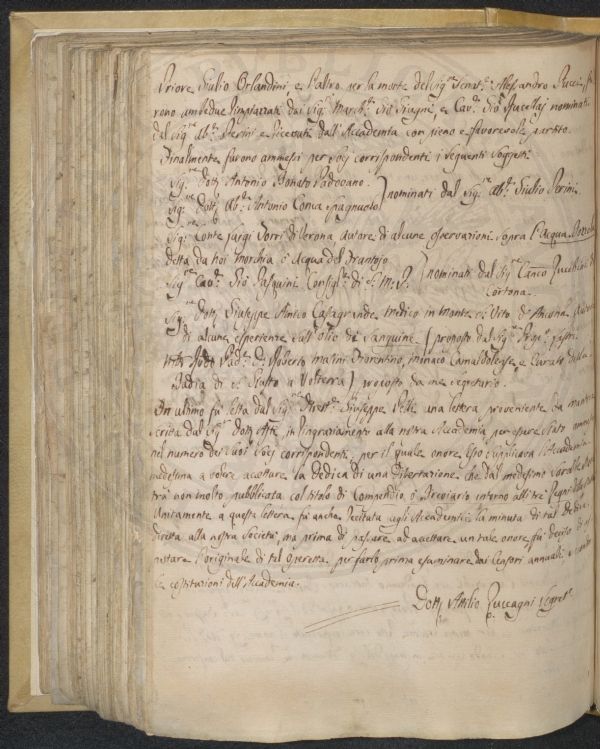 Priore Giulio Orlandini, e l'altro per la morte del Sig.re Senat.re Alessandro Pucci, fu
rono ambedue rimpiazzati dai Sig.i March.e Gio Giugni e Cav.e Gio Rucellaj nominati
dal Sig.re Ab.e Perini e ricevuti dall'Accademia con pieno e favorevole partito.
Finalmente furono ammessi per Socj corrispondenti i seguenti Soggetti
Sig.re Dott. Antonio Bonato Padovano.
Sig.re Dott. Ab.e Antonio Conca Spagnuolo } nominati dal Sig.re Ab.e Giulio Perini
Sig.re Conte Luigi Torri di Verona, autore di alcune osservazioni sopra l'acqua
detta da noi Morchia o Acqua del Frantojo
Sig.re Cav.e Gio Pasquini Consigl.e di S. M. I. } nominati dal Sig.re Can.co Zucchini di
Cortona.
Sig.re Dott. Giuseppe Amico Casagrande Medico in Monte S. Vito de Ancona, autore
di alcune esperienze sull'olio di sanguine. ( proposto dal Sig.re
Pad.e D. Roberto Marini Fiorentino, monaco Camaldolese e Curato della
Badia di S. Giusto a Volterra ) proposto da me segretario.
In ultimo fu letta dal Sig.re Giuseppe Petti una lettera proveniente da Mantova
scritta dal Sig.re Dott. in ringraziamento alla nostra Accademia per essere stato ammesso
nel numero dei suoi Socj corrispondenti, per il quale onore esso supplicava l'Accademia
medesima a volere accettare la dedica di una dissertazione che dal medesimo sarebbe
tra non molto pubblicata col titolo di Compendio, o Breviario intorno alli tre Regni
Unitamente a questa lettera fu anche recitata agli Accademici la minuta di tal dedica
diretta alla nostra Società, ma prima di passare ad accettare un tale onore fu deciso di
l'originale di tal Operetta per farlo prima esaminare dai Censori annuali
le costituzioni dell'Accademia.
Dott. Attilio Zuccagni Segret.o